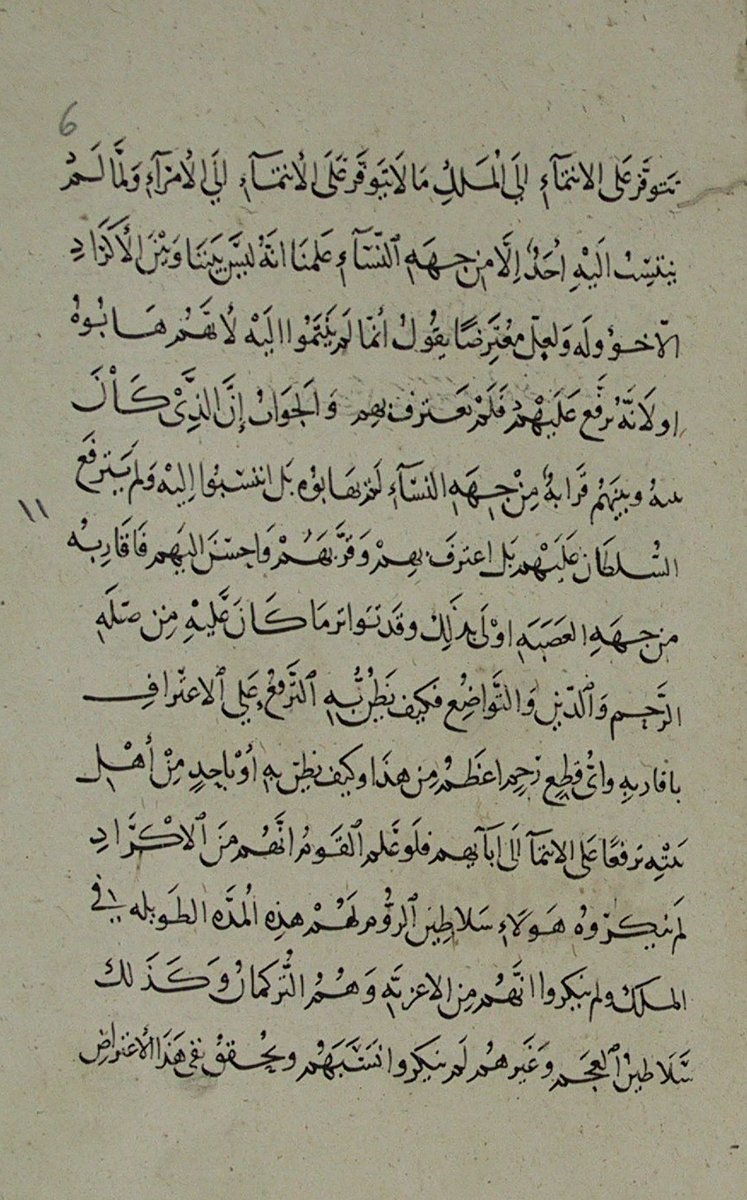 6
تتوفر على الانتمآءِ إلى الملك ما لا يتوفر على الانتمآءِ إلى الأمرآءِ ولما لم
ينتسب اليه أحدٌ إلا من جهه النسآءِ علمنا انه ليس بيننا وبين الأكرادِ
الا خؤوله ولعل معترضًا يقول أنما لم ينتموا اليه لأنهم هابوهُ
او لانه ترفع عليهم فلم يعترف بهم والجواب إن الذي كان
بينه وبينهم قرابهٌ من جهه النسآءِ لم يهابوه بل انتسبوا إليه ولم يترفع
١١
السلطان عليهم بل اعترف بهم وقربهم واحسن اليهم فاقاربه
من جهه العصبه اولى بذلك وقد تواتر ما كان عليه من صله
الرحم والدين والتواضع فكيف يظن به الترفع على الاعتراف
باقاربه واى قطع رحم اعظم من هذا وكيف نظن به أو باحدٍ من أهل
بيته ترفعًا على الانتمآ الى ابآيهم فلو علم القوم انهم من الاكراد
لم ينكروه هولاءِ سلاطين الروم لهم هذه المده الطويله في
الملك ولم ينكروا انهم من الاغزيه وهم التركمان وكذلك
سلاطين العجم وغيرهم لم ينكروا نسبهم ويحقق نفى هذا الأعتراض